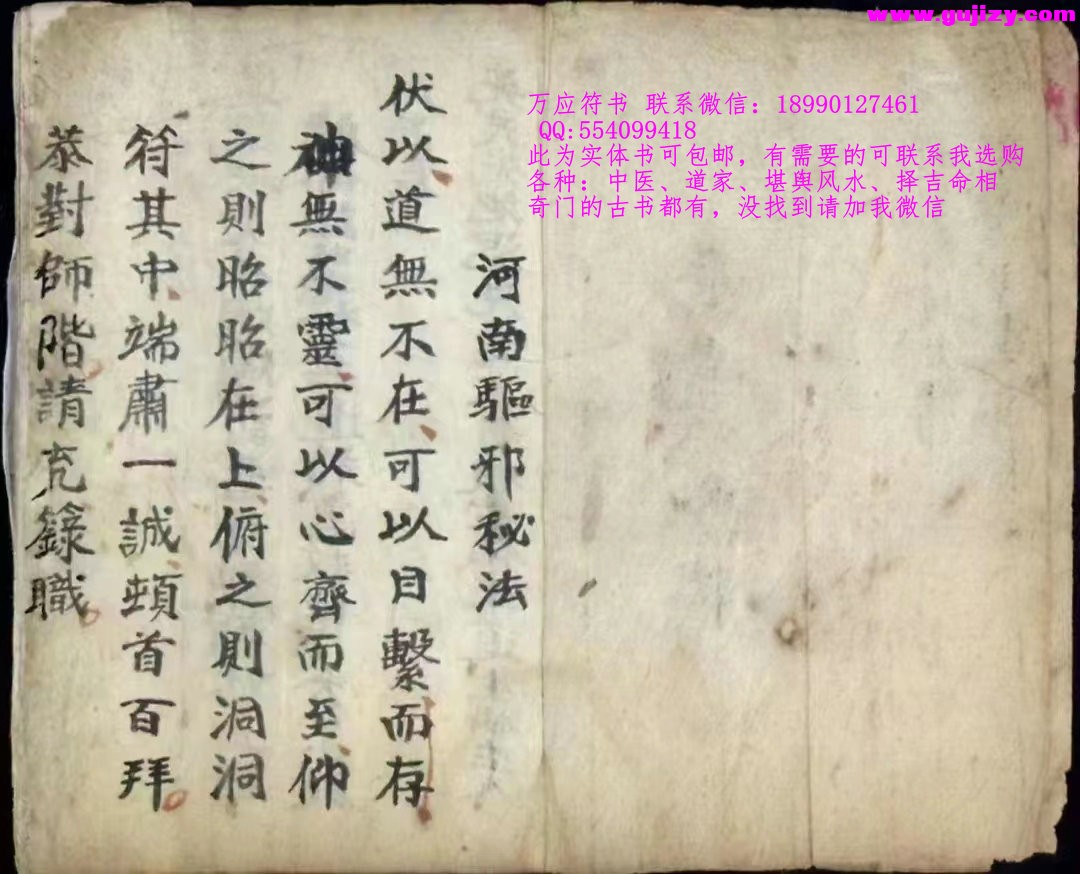 www.gujizy.com
万应符书 联系微信：18990127461
QQ:554099418
此为实体书可包邮，有需要的可联系我选购
各种：中医、道家、堪舆风水、择吉命相
奇门的古书都有，没找到请加我微信
河南驅邪秘法
伏以道無不在可以目繫而存
神無不靈可以心齊而至仰
之則昭昭在上俯之則洞洞
符其中端肅一誠頓首百拜
恭對師階請充籙職